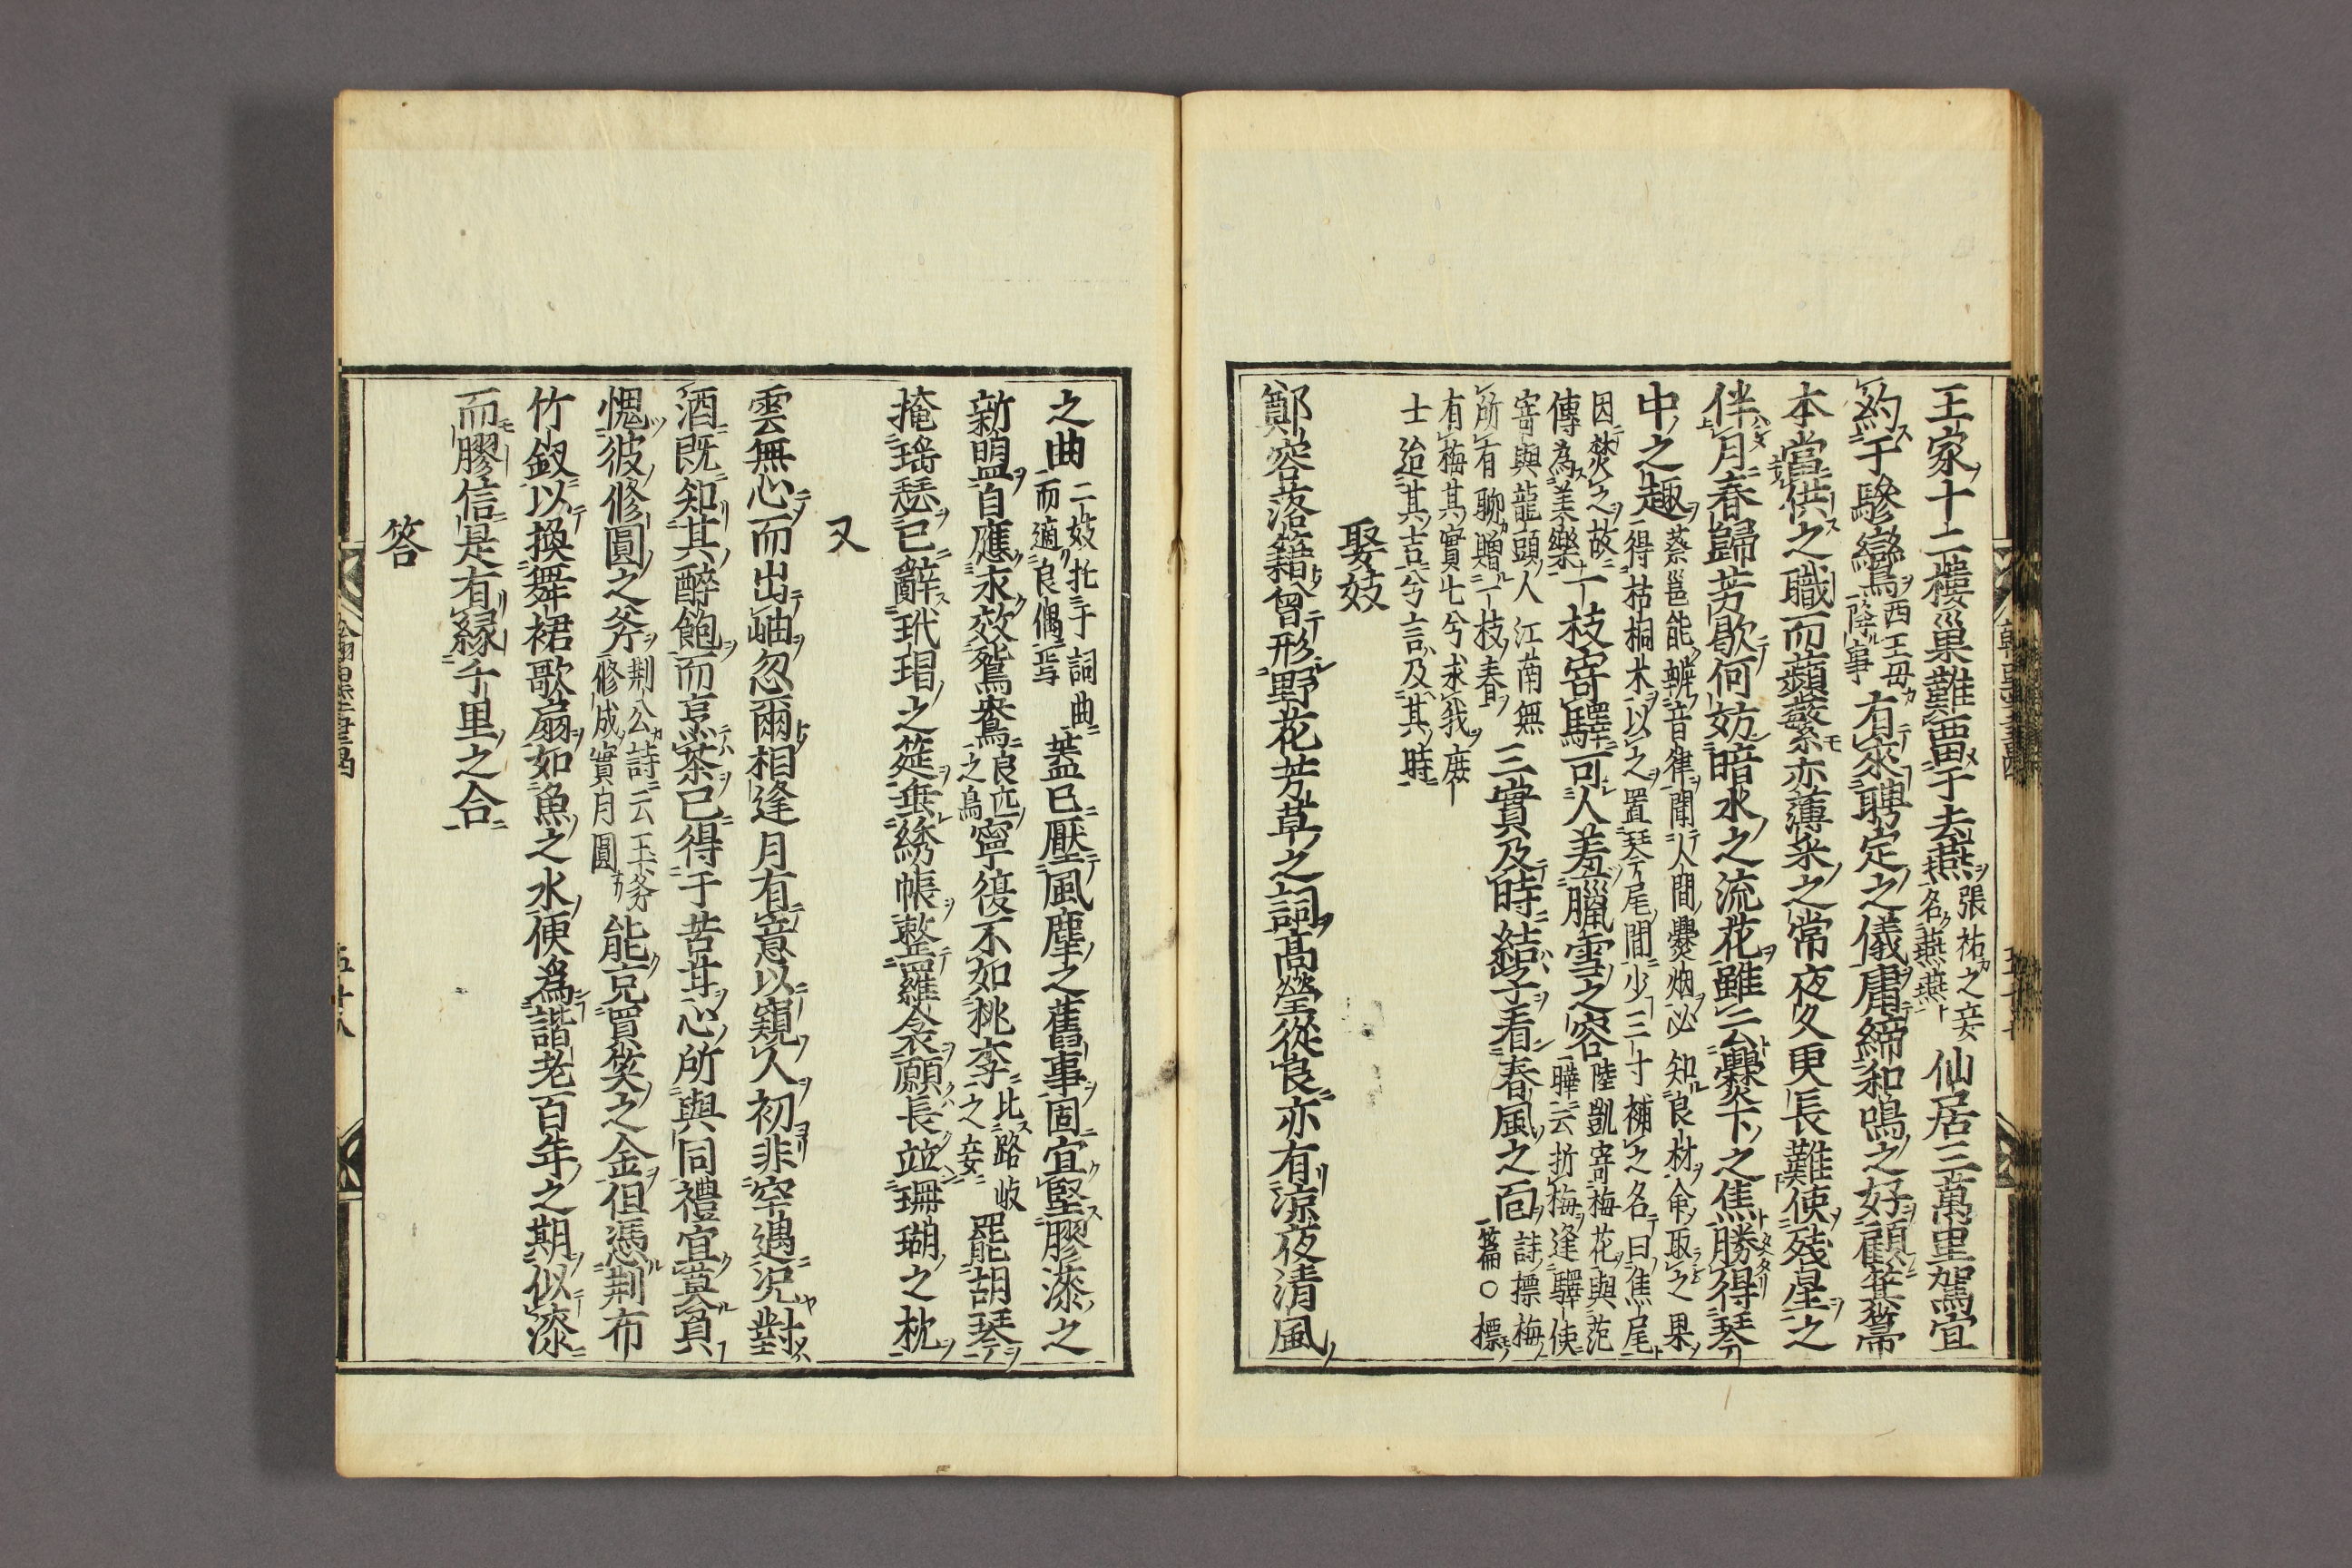 王家十二樓巢難畱于去燕張祐之妾名燕燕仙居三萬里駕宜
約于驂鸞西王母降事有來聘定之儀庸締和鳴之好顧箕箒
本當供之職而蘋蘩亦薄采之常夜久更長難使殘星之
伴月春歸芳歇何妨暗水之流花雖云爨下之焦勝得琴
中之趣蔡邕能辨音律聞人間爨烟必知良材命取之果得枯桐木以之置琴尾間少三寸補之名曰焦尾
因焚之故傳為美樂一枝寄驛可人羞臘雪之容陸凱寄梅花與范曄云折梅逢驛使
寄與龍頭人江南無所有聊贈一枝春三實及時結子看春風之面詩摽梅篇○摽
有梅其實七兮求我庶士迨其吉兮言及其時
娶妓
鄭容落籍曾形野花芳草之詞高瑩從良亦有涼夜清風
之曲二妓托于詞曲而適良偶焉蓋已壓風塵之舊事固宜堅膠漆之
新盟自應永效鴛鴦良匹之鳥寧復不如桃李比路岐之妾罷胡琴
掩瑤瑟已辭玳瑁之筵垂綉帳整羅衾願長並珊瑚之枕
又
雲無心而出岫忽爾相逢月有意以窺人初非罕遇况對
酒既知其醉飽而烹茶已得于苦甘心所與同禮宜莫負
愧彼修圓之斧荆公詩云玉斧修成實月圓能克買笑之金但憑荆布
竹釵以換舞裙歌扇如魚之水便為諧老百年之期似漆
而膠信是有緣千里之合
答
五十八